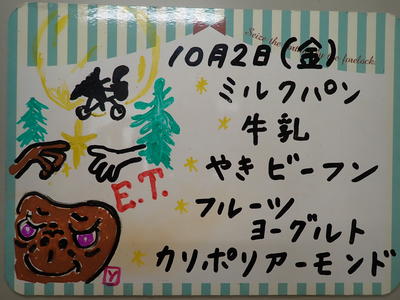 Seize the
the forelock.
10月2日(金)
ミルクパン
牛乳
やきビーフン
フルーツ
ヨーグルト
カリポリアーモンド
E.T.
Y